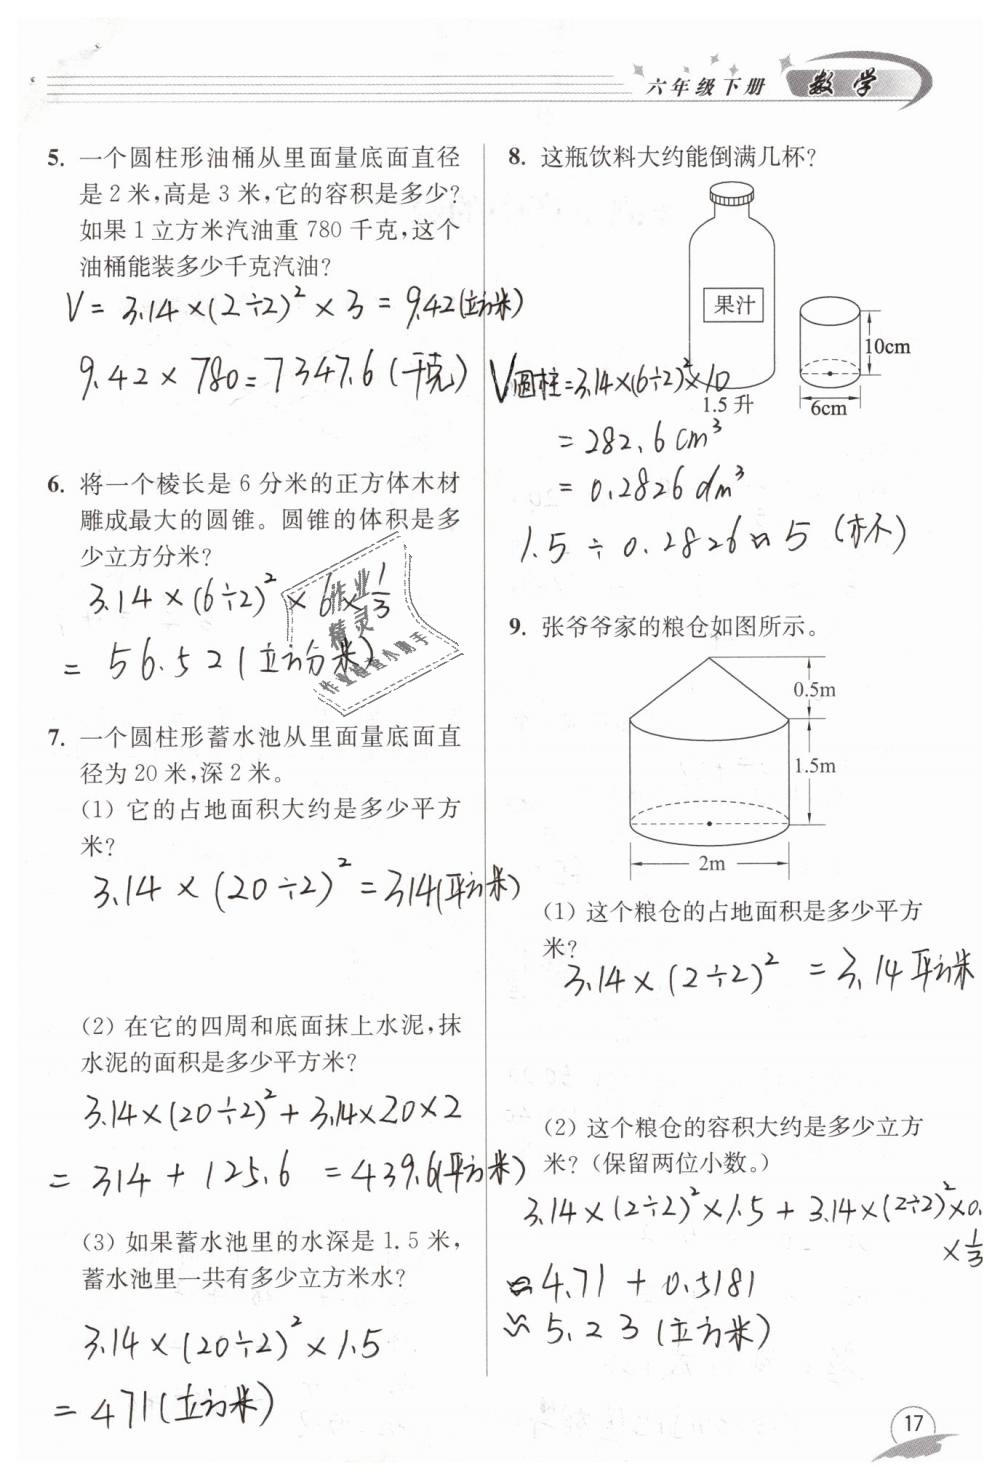 六年级下册 数学
5. 一个圆柱形油桶从里面量底面直径
是2米,高是3米,它的容积是多少?
如果1立方米汽油重780千克,这个
油桶能装多少千克汽油?
V = 3.14×(2÷2)²×3 = 9.42(立方米)
9.42×780=7347.6(千克)
6. 将一个棱长是6分米的正方体木材
雕成最大的圆锥。圆锥的体积是多
少立方分米?
3.14×(6÷2)²×6×1/3
= 56.52(立方分米)
作业
精灵
作业检查小助手
7. 一个圆柱形蓄水池从里面量底面直
径为20米,深2米。
(1) 它的占地面积大约是多少平方
米?
3.14×(20÷2)²=314(平方米)
(2) 在它的四周和底面抹上水泥,抹
水泥的面积是多少平方米?
3.14×(20÷2)²+3.14×20×2
= 314+125.6 =439.6(平方米)
(3) 如果蓄水池里的水深是1.5米,
蓄水池里一共有多少立方米水?
3.14×(20÷2)²×1.5
= 471(立方米)
8. 这瓶饮料大约能倒满几杯?
果汁
10cm
1.5升
6cm
V圆柱=3.14×(6÷2)²×10
= 282.6cm³
= 0.2826dm³
1.5÷0.2826≈5(杯)
9. 张爷爷家的粮仓如图所示。
0.5m
1.5m
2m
(1) 这个粮仓的占地面积是多少平方
米?
3.14×(2÷2)² = 3.14平方米
(2) 这个粮仓的容积大约是多少立方
米?(保留两位小数。)
3.14×(2÷2)²×1.5+3.14×(2÷2)²×0.
×1/3
≈4.71+0.5181
≈5.23(立方米)
17